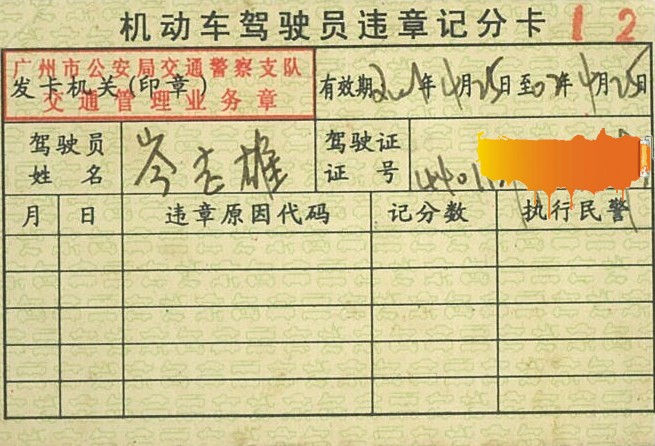 机动车驾驶员违章记分卡 12
广州市公安局交通警察支队
发卡机关(印章)
交通管理业务章
有效期2001年4月25日至02年4月25日
驾驶员姓名 岑志雄
驾驶证证号 4401
月 日 违章原因代码 记分数 执行民警